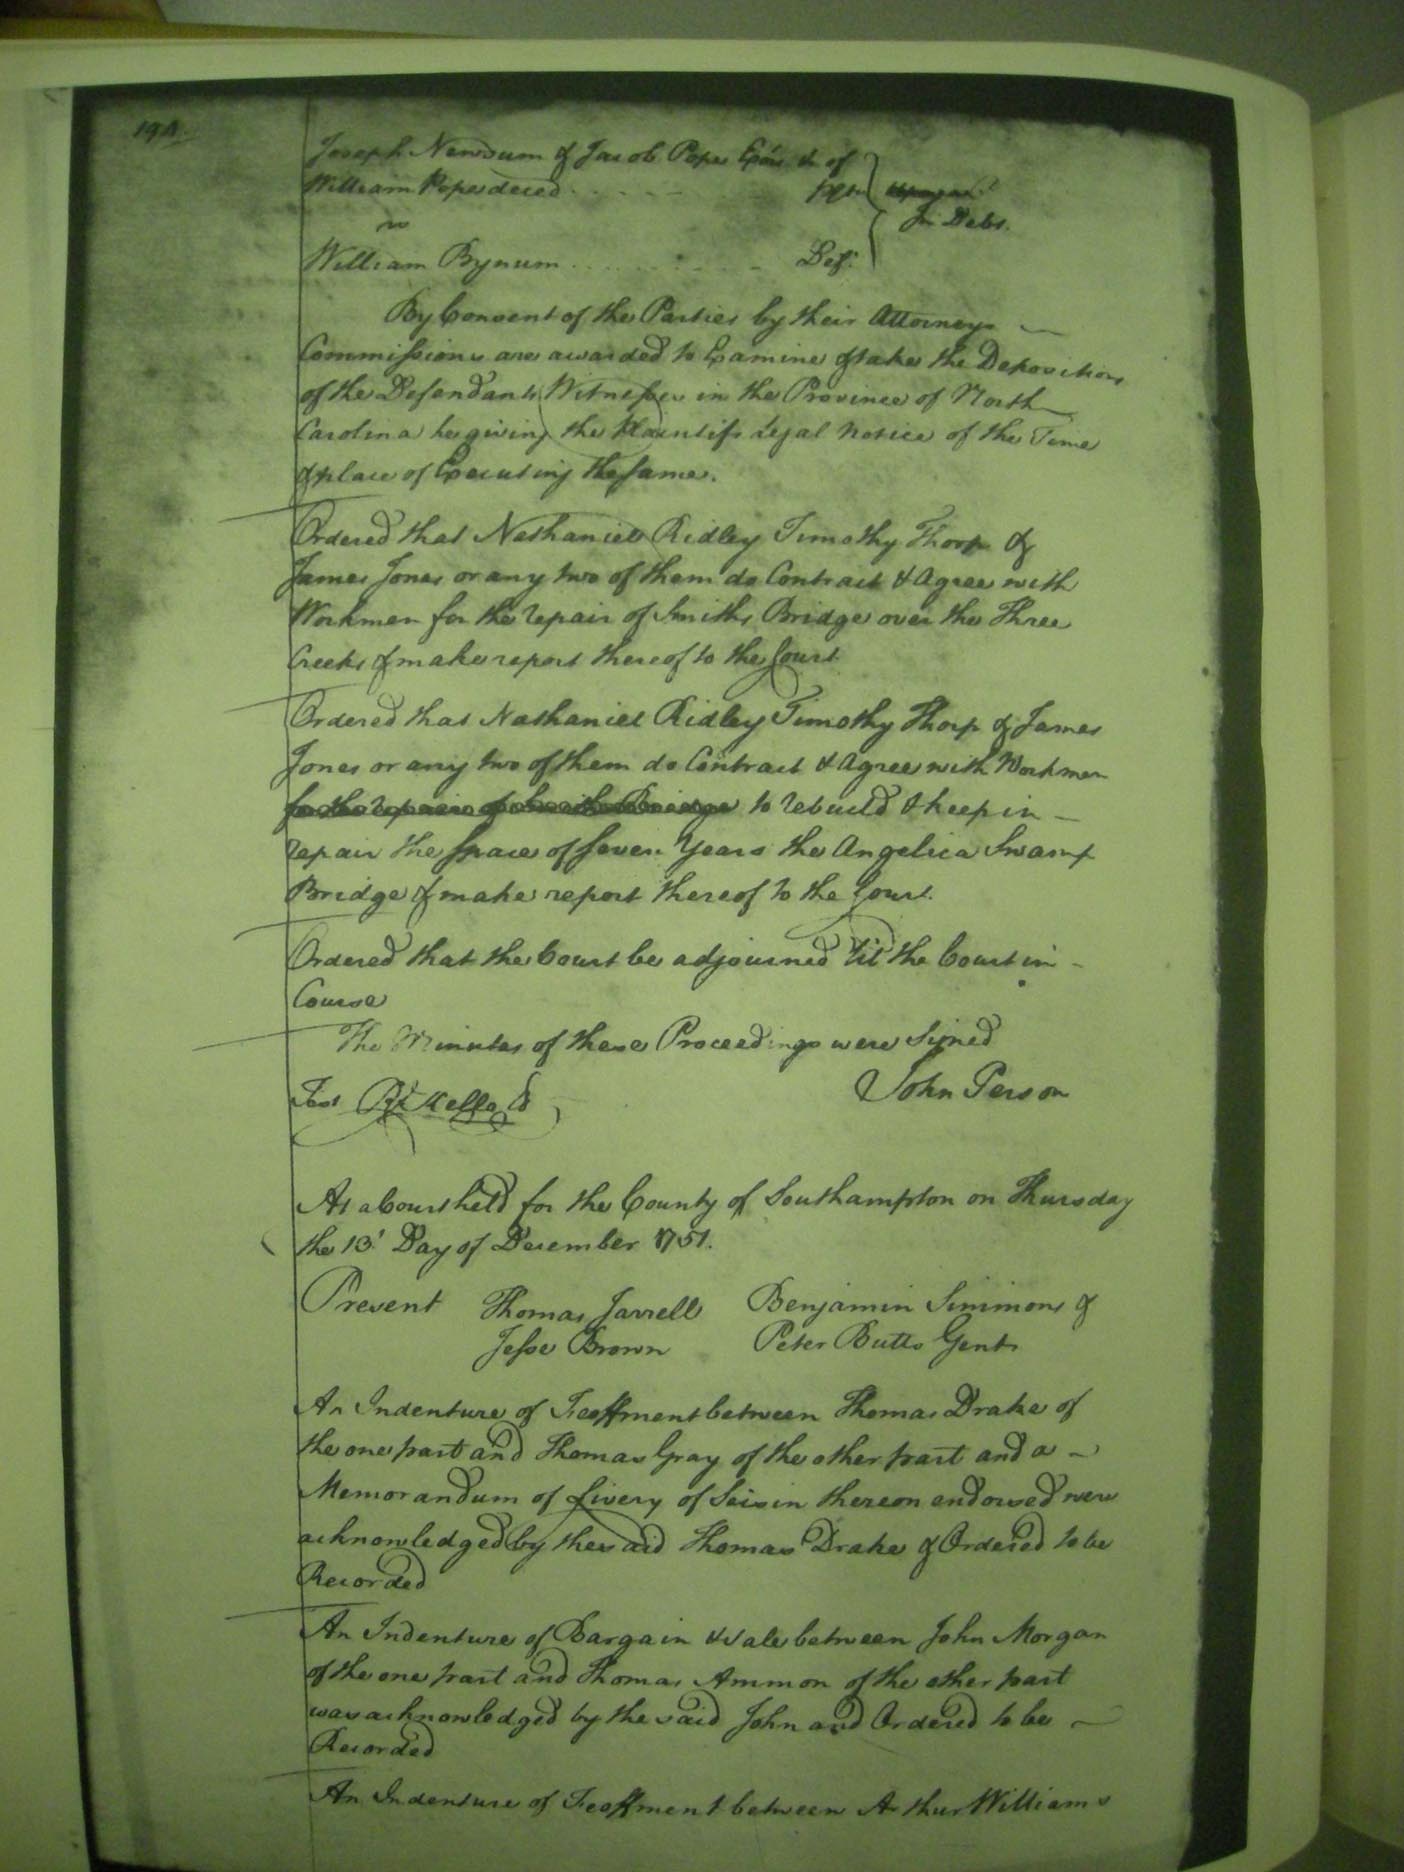 194.
Joseph Newsum & Jacob Pope Exrs &c of
William Pope deced . . . . . . Plts
vs In Debt.
William Bynum . . . . . . . . . Deft.
By Consent of the Parties by their Attorneys
Commissions are awarded to Examine & take the Depositions
of the Defendants Witnesses in the Province of North
Carolina he giving the Plaintifs legal notice of the Time
& place of Executing the same.
Ordered that Nathaniel Ridley Timothy Thorp &
James Jones or any two of them do Contract & Agree with
Workmen for the repair of Smiths Bridge over the Three
Creeks & make report thereof to the Court
Ordered that Nathaniel Ridley Timothy Thorp & James
Jones or any two of them do Contract & Agree with Workmen
for the repair of Smiths Bridge to rebuild & keep in
repair the space of seven Years the Angelica Swamp
Bridge & make report thereof to the Court.
Ordered that the Court be adjourned 'til the Court in
Course
The Minutes of these Proceedings were Signed
Test Rd Kello John Person
At a Court held for the County of Southampton on Thursday
the 13t Day of December 1751.
Present Thomas Jarrell Benjamin Simmons &
Jesse Brown Peter Butts Gents
An Indenture of Feoffment between Thomas Drake of
the one part and Thomas Gray of the other part and a
Memorandum of Livery of Seisin thereon endorsed were
acknowledged by the said Thomas Drake & Ordered to be
Recorded
An Indenture of Bargain & Sale between John Morgan
of the one part and Thomas Ammon of the other part
was acknowledged by the said John and Ordered to be
Recorded
An Indenture of Feoffment between Arthur Williams